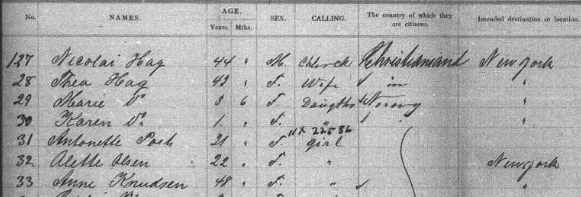 No. NAMES. AGE. Years. Mths. SEX. CALLING. The country of which they are citizens. Intended destination or location
127 Nicolai Hag 44 " M. Clerck Christiansand New york
28 Thea Hag 43 " F. Wife " in "
29 Marie Do 3 6 F. Daughter Norway "
30 Karen Do 1 " F. " " "
11X 22586
31 Antonette 21 " F girl
32 Alette Olsen 22 " F. " New york
33 Anne Knudsen 48 " F. " "